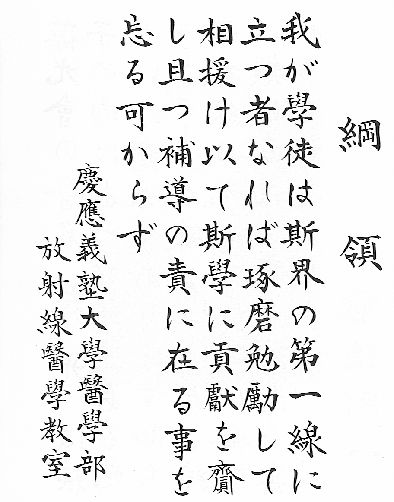 綱領
我が學徒は斯界の第一線に
立つ者なれば琢磨勉勵して
相援け以て斯學に貢獻を齎
し且つ補導の責に在る事を
忘る可からず
慶應義塾大學醫學部
放射線醫學教室